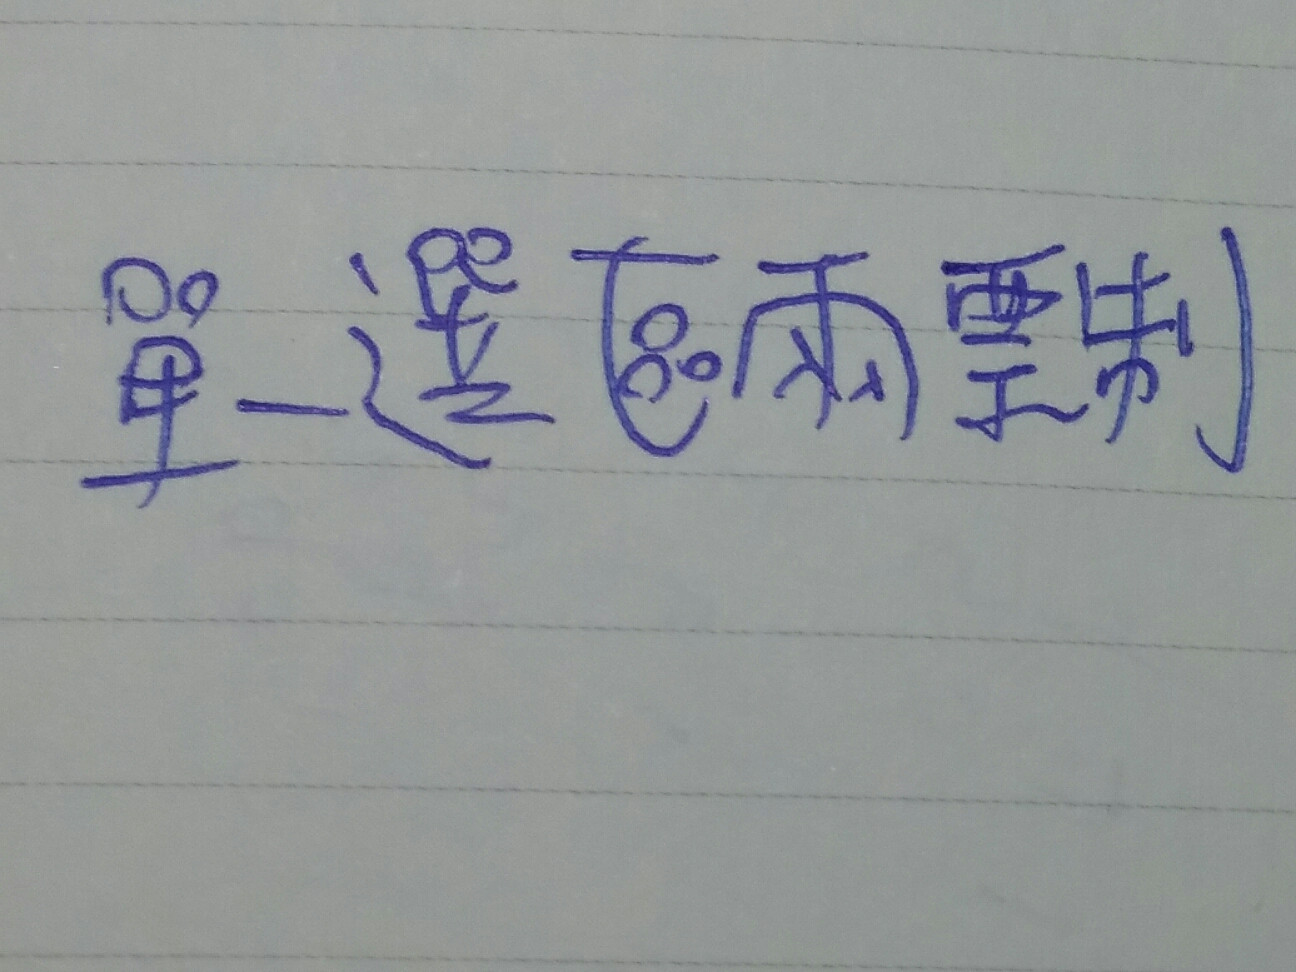 單一選區兩票制